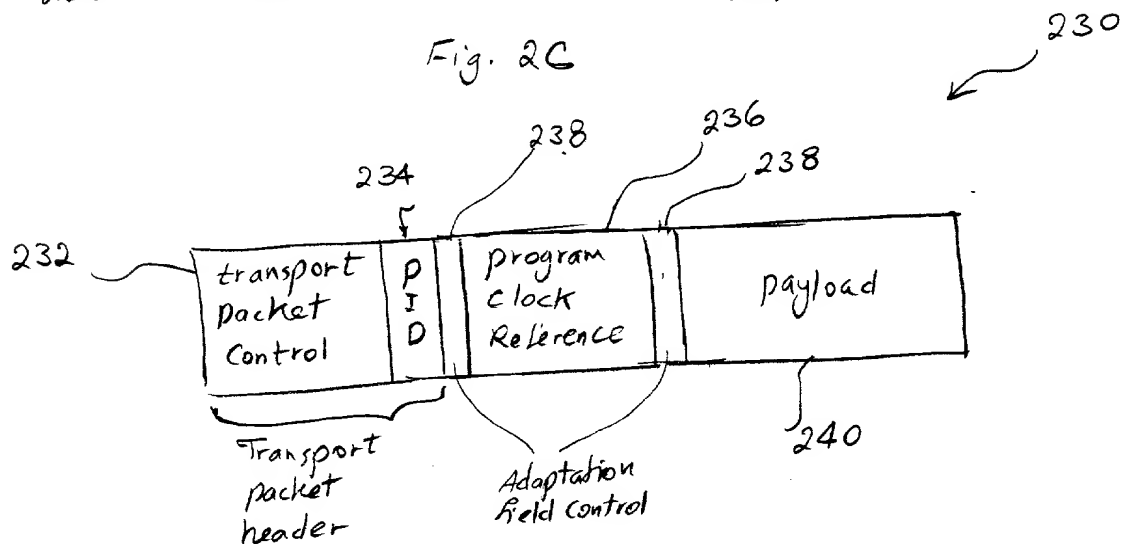 Fig. 2C
230
238
236
238
234
232
transport
packet
control
PID
program
clock
Reference
payload
240
Transport
packet
header
Adaptation
field control